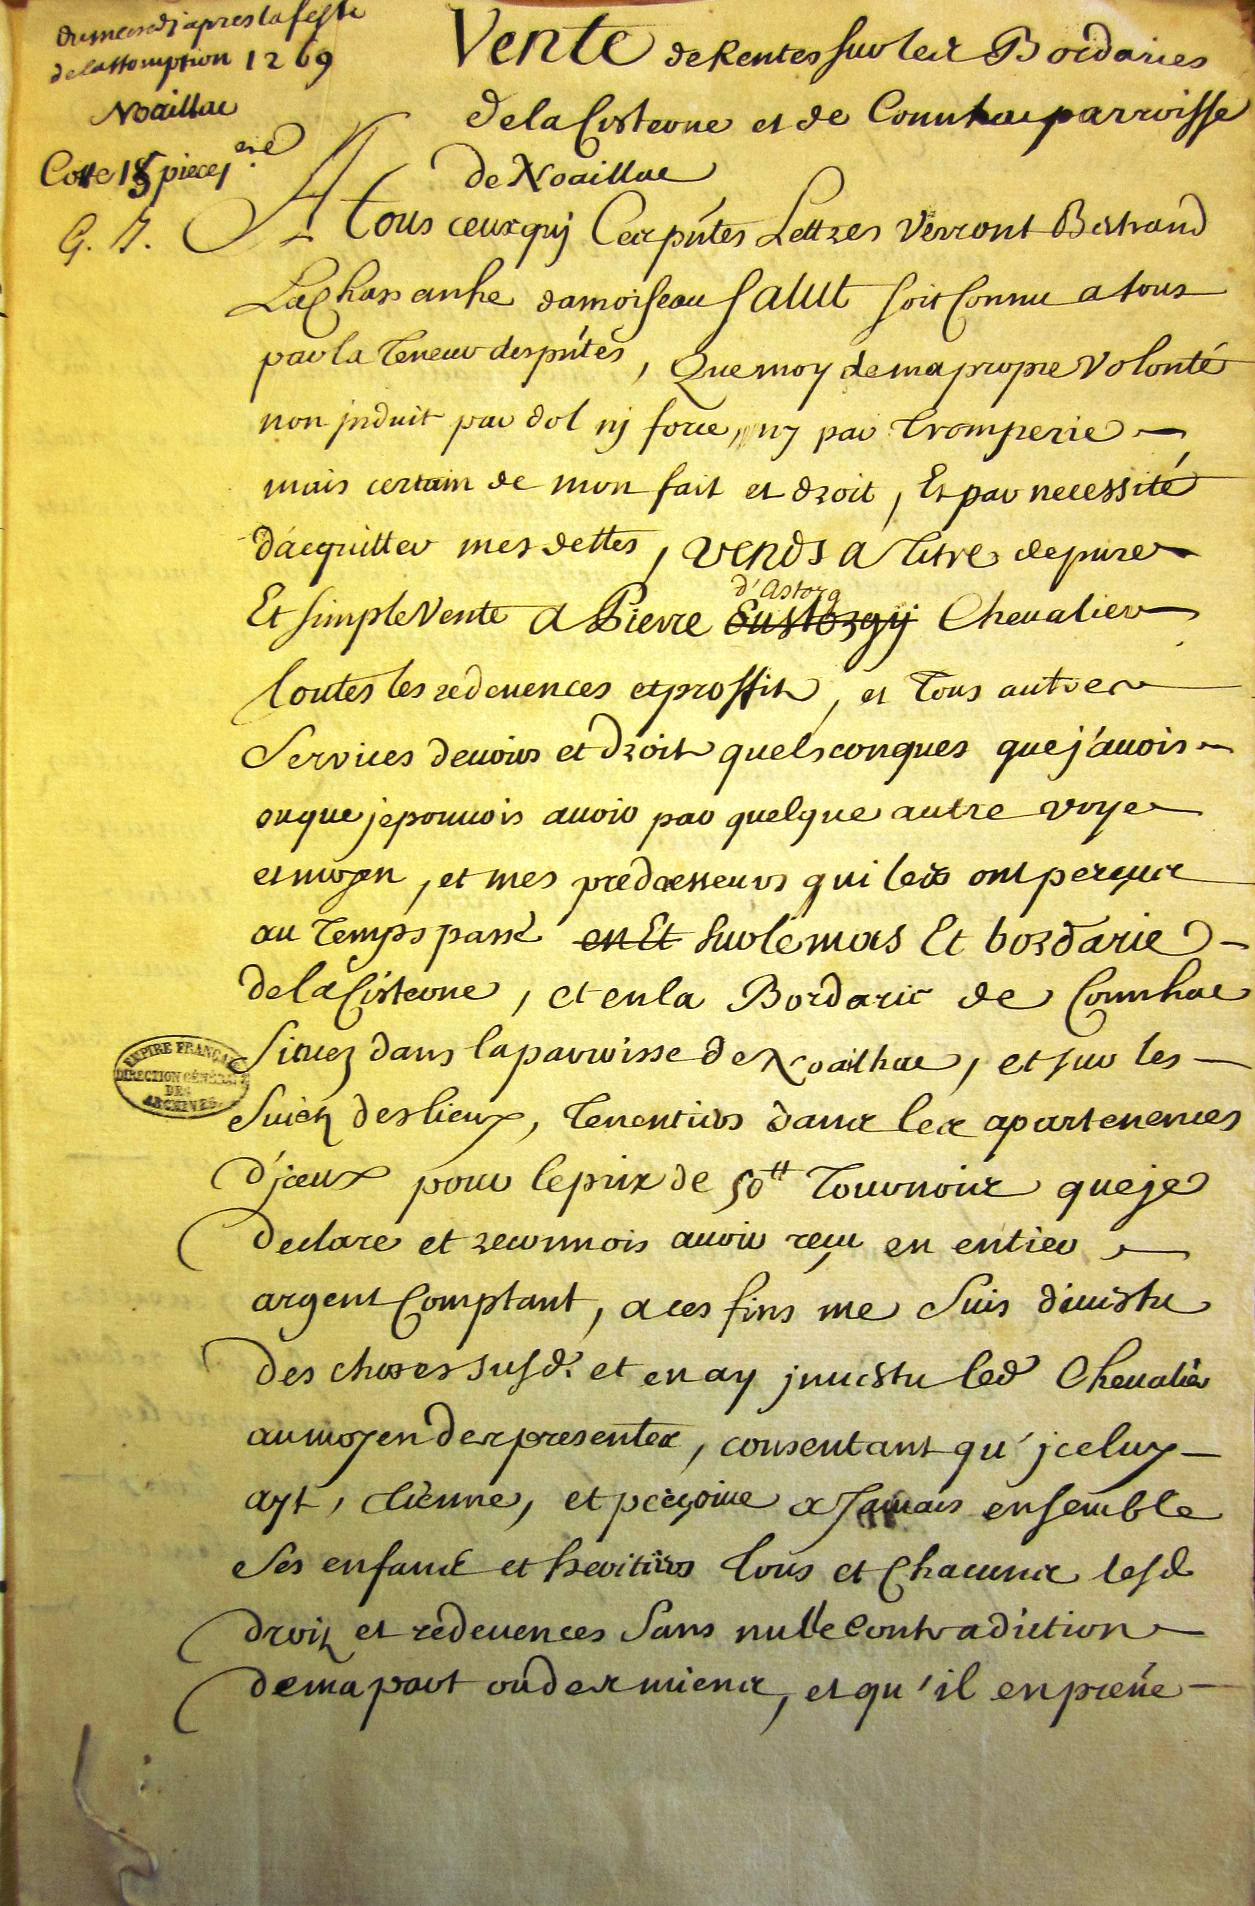 du mercredj apres la feste
de lassomption 1269
Noaillac
Cotte 18 piece 1ere
G. J.
Vente de Rentes sur les Bordaries
de la Cisterne et de Connhac parroisse
de Noaillac
A tous ceux quj Ces pńtes Lettres Verront Bertrand
La Chassanhe damoiseau salut soit Connu a tous
par la Teneur des pńtes, Que moy de ma propre Volonté
non jnduit par dol nj force, ny par Tromperie
mais certain de mon fait et droit, Et par necessité
d'acquitter mes dettes, vends a Titre de pure
Et simple Vente a Pierre Eustorgij d'Astorg Chevalier
toutes les redevences et proffits, et Tous autres
Services devoirs et droits quelsconques que j'avois
ou que je pouvois avoir par quelque autre voye
et moyen, et mes predcesseurs qui les ont perçus
au Temps passé en Et sur le mas Et bordarie
de la Cisterne, et en la Bordarie de Connhac
Situez dans la parroisse de Noailhac, et sur les
Suietz des lieux, Tenentiers dans les apartenences
d'jceux pour le prix de 50tt Tournois que je
declare et reconnois avoir reçu en entier
argent Comptant, a ces fins me Suis divestu
des choses susd. et en ay jnvestu led Chevalier
au moyen des presentes, consentant qu'jceluy
ayt, tienne, et perçoive a Jamais ensemble
Ses enfans et heritiers Tous et Chacuns lesd
droitz et redevences Sans nulle Contradiction
de ma part ou des miens, et qu'il en prene
EMPIRE FRANÇAIS
DIRECTION GÉNÉRALE
DES
ARCHIVES